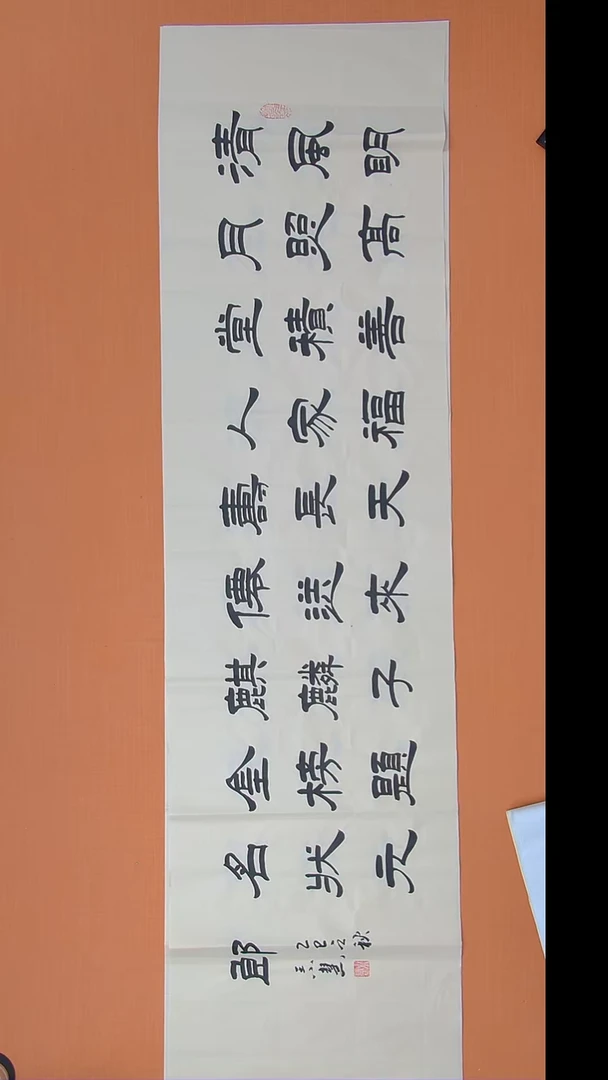 清風明
月照高
堂積善
人家福
壽長天
僊送來
麒麟子
金榜題
名狀元
郎
乙巳之秋